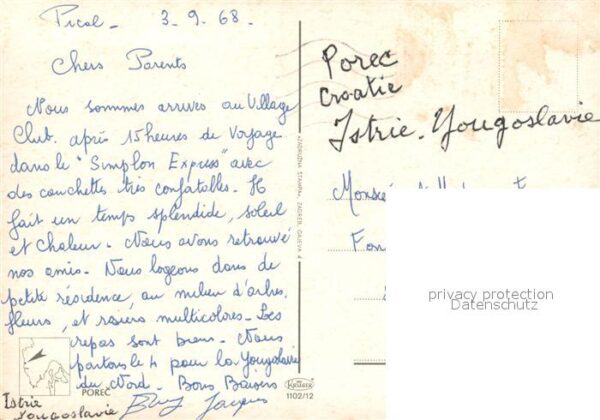 Pical - 3-9-68-
Chers Parents
Nous sommes arrivés au Village
Club. après 15 heures de Voyage
dans le "Simplon Express" avec
des couchettes très confatables. Il
fait un temps splendide, soleil
et Chaleur - Nous avons retrouvé
nos amis - Nous logeons dans de
petite résidence, au milieu d'arbres,
fleurs, et rosiers multicolores - Les
repas sont biens - Nous
partons le 4 pour la Yougoslavie
du Nord - Bons Baisers
Jacques
POREČ
Istrie
Yougoslavie
»ZADRUŽNA ŠTAMPA«, ZAGREB, GAJEVA 4
1102/12
Porec
Croatie
Istrie. Yougoslavie
privacy protection
Datenschutz